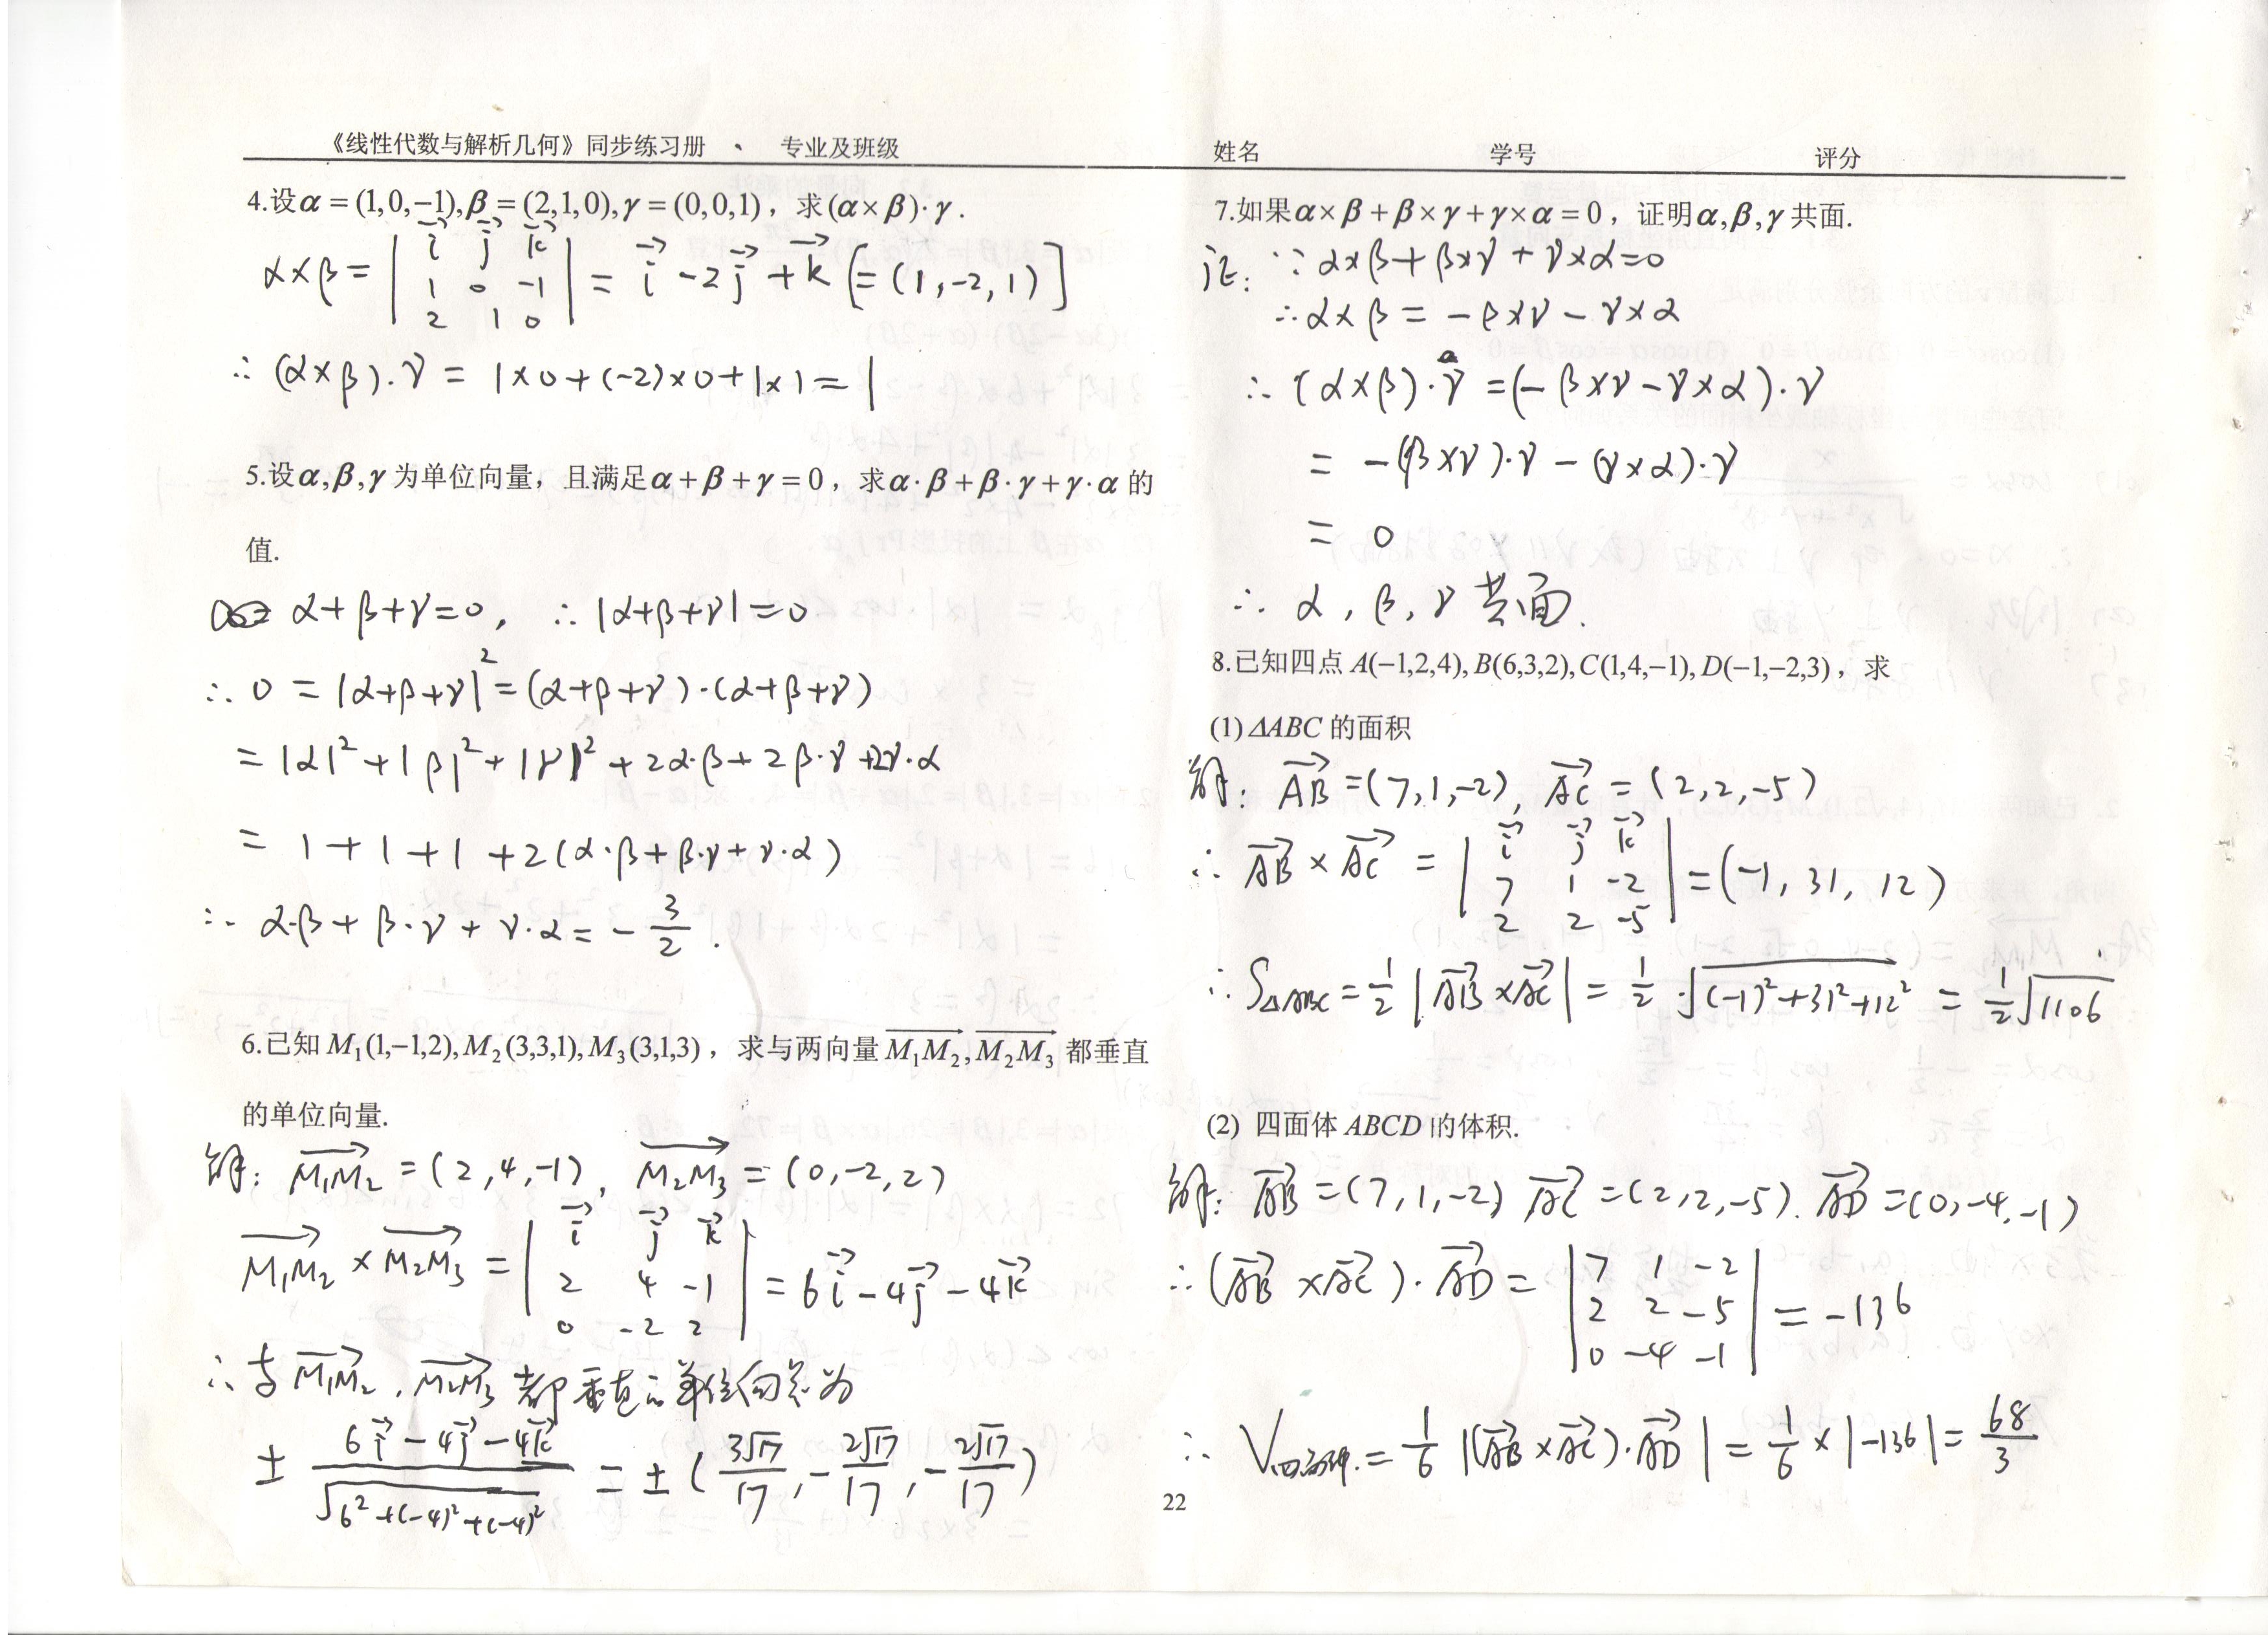 《线性代数与解析几何》同步练习册 、 专业及班级 姓名 学号 评分
4.设α = (1,0,−1),β = (2,1,0),γ = (0,0,1)，求(α×β)·γ.
α×β = | i⃗ j⃗ k⃗ | = i⃗ −2j⃗ + k⃗ [= (1,−2,1)]
1 0 −1
2 1 0
∴ (α×β)·γ = 1×0+(−2)×0+1×1 = 1
5.设α,β,γ为单位向量，且满足α+β+γ=0，求α·β+β·γ+γ·α的
值.
α+β+γ=0, ∴ |α+β+γ|=0
∴ 0 = |α+β+γ|² = (α+β+γ)·(α+β+γ)
= |α|²+|β|²+|γ|²+2α·β+2β·γ+2γ·α
= 1+1+1+2(α·β+β·γ+γ·α)
∴ α·β+β·γ+γ·α = −3/2.
6.已知M₁(1,−1,2),M₂(3,3,1),M₃(3,1,3)，求与两向量M₁M₂,M₂M₃都垂直
的单位向量.
解: M₁M₂ = (2,4,−1), M₂M₃ = (0,−2,2)
M₁M₂ × M₂M₃ = | i⃗ j⃗ k⃗ | = 6i⃗ −4j⃗ −4k⃗
2 4 −1
0 −2 2
∴ 与M₁M₂, M₂M₃都垂直的单位向量为
± (6i⃗ −4j⃗ −4k⃗)/√(6²+(−4)²+(−4)²) = ±(3√17/17, −2√17/17, −2√17/17)
7.如果α×β+β×γ+γ×α=0，证明α,β,γ共面.
证: ∵ α×β+β×γ+γ×α=0
∴ α×β = −β×γ−γ×α
∴ (α×β)·γ = (−β×γ−γ×α)·γ
= −(β×γ)·γ−(γ×α)·γ
= 0
∴ α, β, γ 共面.
8.已知四点A(−1,2,4),B(6,3,2),C(1,4,−1),D(−1,−2,3)，求
(1) ΔABC的面积
解: AB = (7,1,−2), AC = (2,2,−5)
∴ AB × AC = | i⃗ j⃗ k⃗ | = (−1, 31, 12)
7 1 −2
2 2 −5
∴ S△ABC = 1/2 |AB×AC| = 1/2 √((−1)²+31²+12²) = 1/2 √1106
(2) 四面体ABCD的体积.
解: AB = (7,1,−2) AC = (2,2,−5). AD = (0,−4,−1)
∴ (AB×AC)·AD = | 7 1 −2 | = −136
2 2 −5
0 −4 −1
∴ V四面体. = 1/6 |(AB×AC)·AD| = 1/6 × |−136| = 68/3
22